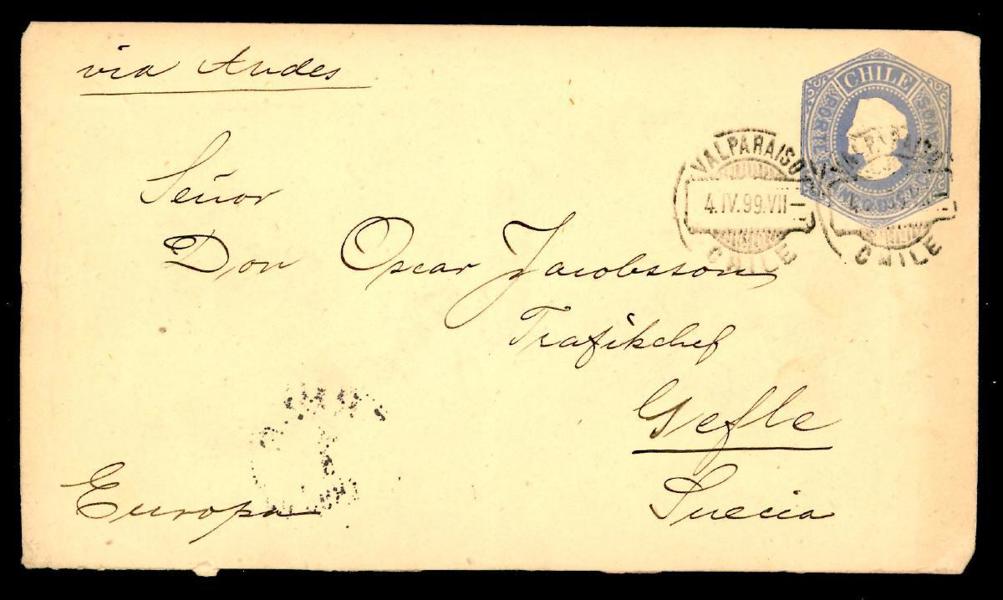 via Andes
CHILE
VALPARAISO
4.IV.99.VII
CHILE
VALPARAISO
CHILE
Señor
Don Oscar Jacobsson
Trafikchef
Gefle
Suecia
Europa